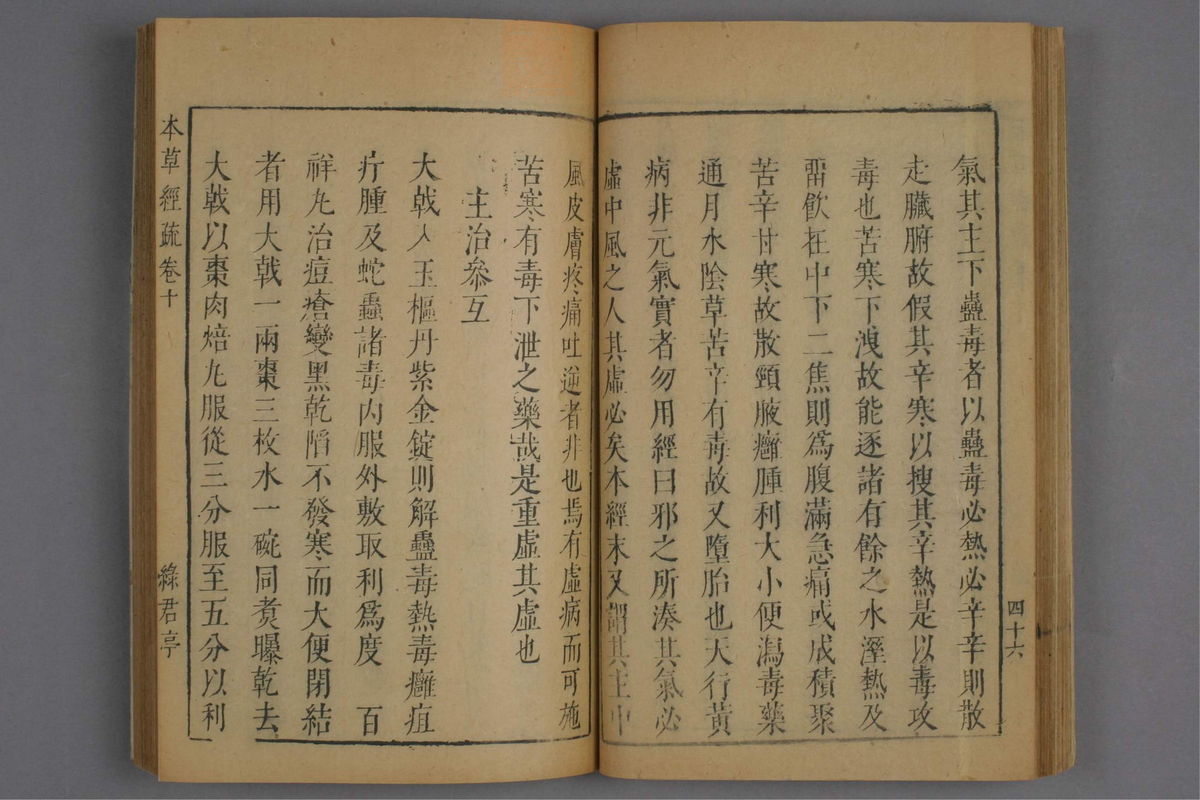 四十六
氣其主下蠱毒者以蠱毒必熱必辛辛則散
走臟腑故假其辛寒以搜其辛熱是以毒攻
毒也苦寒下洩故能逐諸有餘之水溼熱及
畱飲在中下二焦則爲腹滿急痛或成積聚
苦辛甘寒故散頸腋癰腫利大小便瀉毒藥
通月水陰草苦辛有毒故又墮胎也天行黃
病非元氣實者勿用經曰邪之所湊其氣必
虛中風之人其虛必矣本經末又謂其主中
風皮膚疼痛吐逆者非也焉有虛病而可施
苦寒有毒下泄之藥哉是重虛其虛也
主治參互
大戟入玉樞丹紫金錠則解蠱毒熱毒癰疽
疔腫及蛇蟲諸毒內服外敷取利爲度　百
祥丸治痘瘡變黑乾陷不發寒而大便閉結
者用大戟一兩棗三枚水一碗同煑曝乾去
大戟以棗肉焙丸服從三分服至五分以利
本草經疏卷十
綠君亭